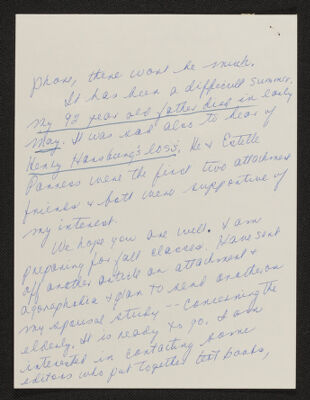 phone, there wont be much.
It has been a difficult summer.
My 92 year old father died in early
May. It was sad also to hear of
Henry Hansburg's loss. He & Estelle
were the first two attachment
friends & both were supportive of
my interest.
We hope you are well. I am
preparing for fall classes. Have sent
off another article on attachment &
agoraphobia & plan to send another on
my spousal study -- concerning the
elderly. It is ready to go. I am
interested in contacting some
editors who put together text books,